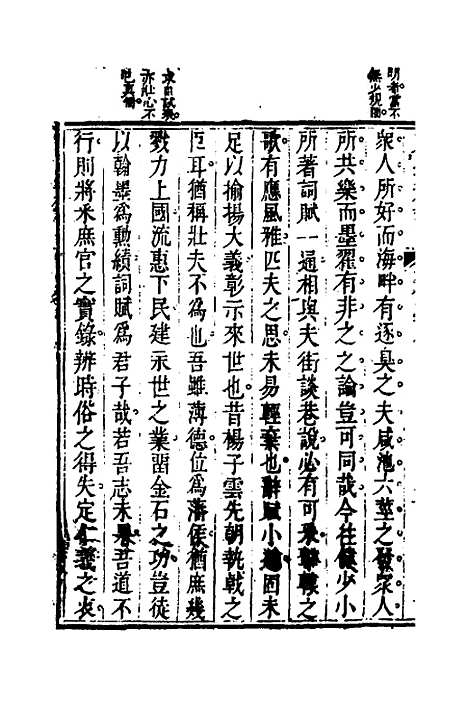 衆人所好而海畔有逐臭之夫咸池六莖之發衆人
所共樂而墨翟有非之之論豈可同哉今往僕少小
所著詞賦一通相與夫街談巷說必有可采擊轅之
歌有應風雅匹夫之思未易輕棄也辭賦小道固未
足以揄揚大義彰示來世也昔楊子雲先朝執戟之
臣耳猶稱壯夫不爲也吾雖薄德位爲藩侯猶庶幾
戮力上國流惠下民建永世之業留金石之功豈徒
以翰墨爲勳績詞賦爲君子哉若吾志未果吾道不
行則將采庶官之實錄辨時俗之得失定仁義之衷
當不
無少
亦壯心不